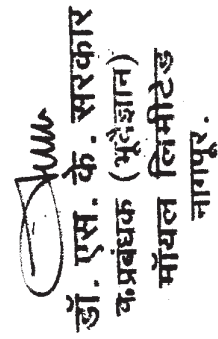 डॉ. एस. के. सरकार
व.प्रबंधक (भूविज्ञान)
मॉयल लिमीटेड
नागपूर.